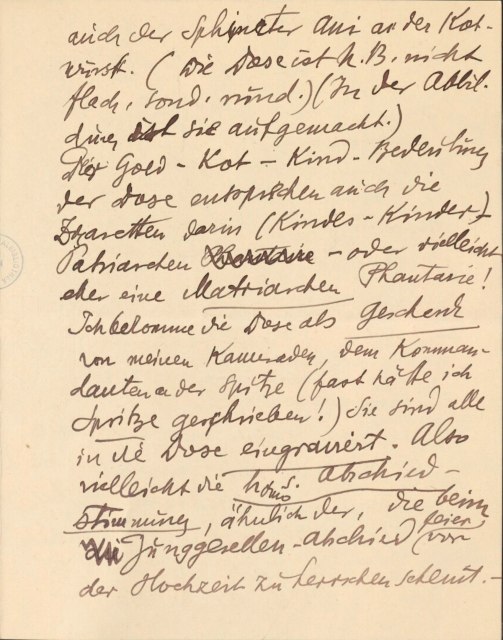 auch der Sphincter Ani an der Kot-
wurst. (Die Dose ist N.B. nicht
flach, sond. rund.) (In der Abbil-
dung ist sie aufgemacht.)
Der Gold - Kot - Kind - Bedeutung
der Dose entsprechen auch die
Zigaretten darin (Kindes-Kinder)-
Patriarchen - oder vielleicht
eher eine Matriarchen Phantasie!
Ich bekomme die Dose als Geschenk
von meinen Kameraden, dem Komman-
danten an der Spitze (fast hätte ich
Spritze geschrieben!) Sie sind alle
in die Dose eingraviert. Also
vielleicht die homos. Abschied-
stimmung, ähnlich der, die beim
Junggesellen-Abschied (feier) vor
der Hochzeit zu herrschen scheint.-